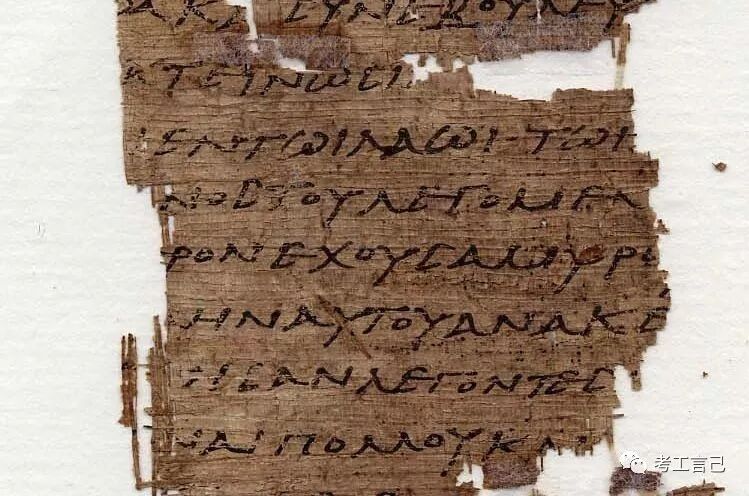 ΑΚ ϹΥΝΕΒΟΥΛΕΥ
ΚΤΕΙΝΩϹΙ
ΕΝΤΩΙΛΑΩΙ·ΤΩΙ
ΝΟϹΤΟΥΛΕΓΟΜΕΝ
ΡΟΝΕΧΟΥϹΑΜΥΡΟ
ΛΗΝΑΥΤΟΥΑΝΑΚΕ
ΗϹΑΝΛΕΓΟΝΤΕϹ
ΝΑΙΠΟΛΛΟΥΚΑΙ
考工言己